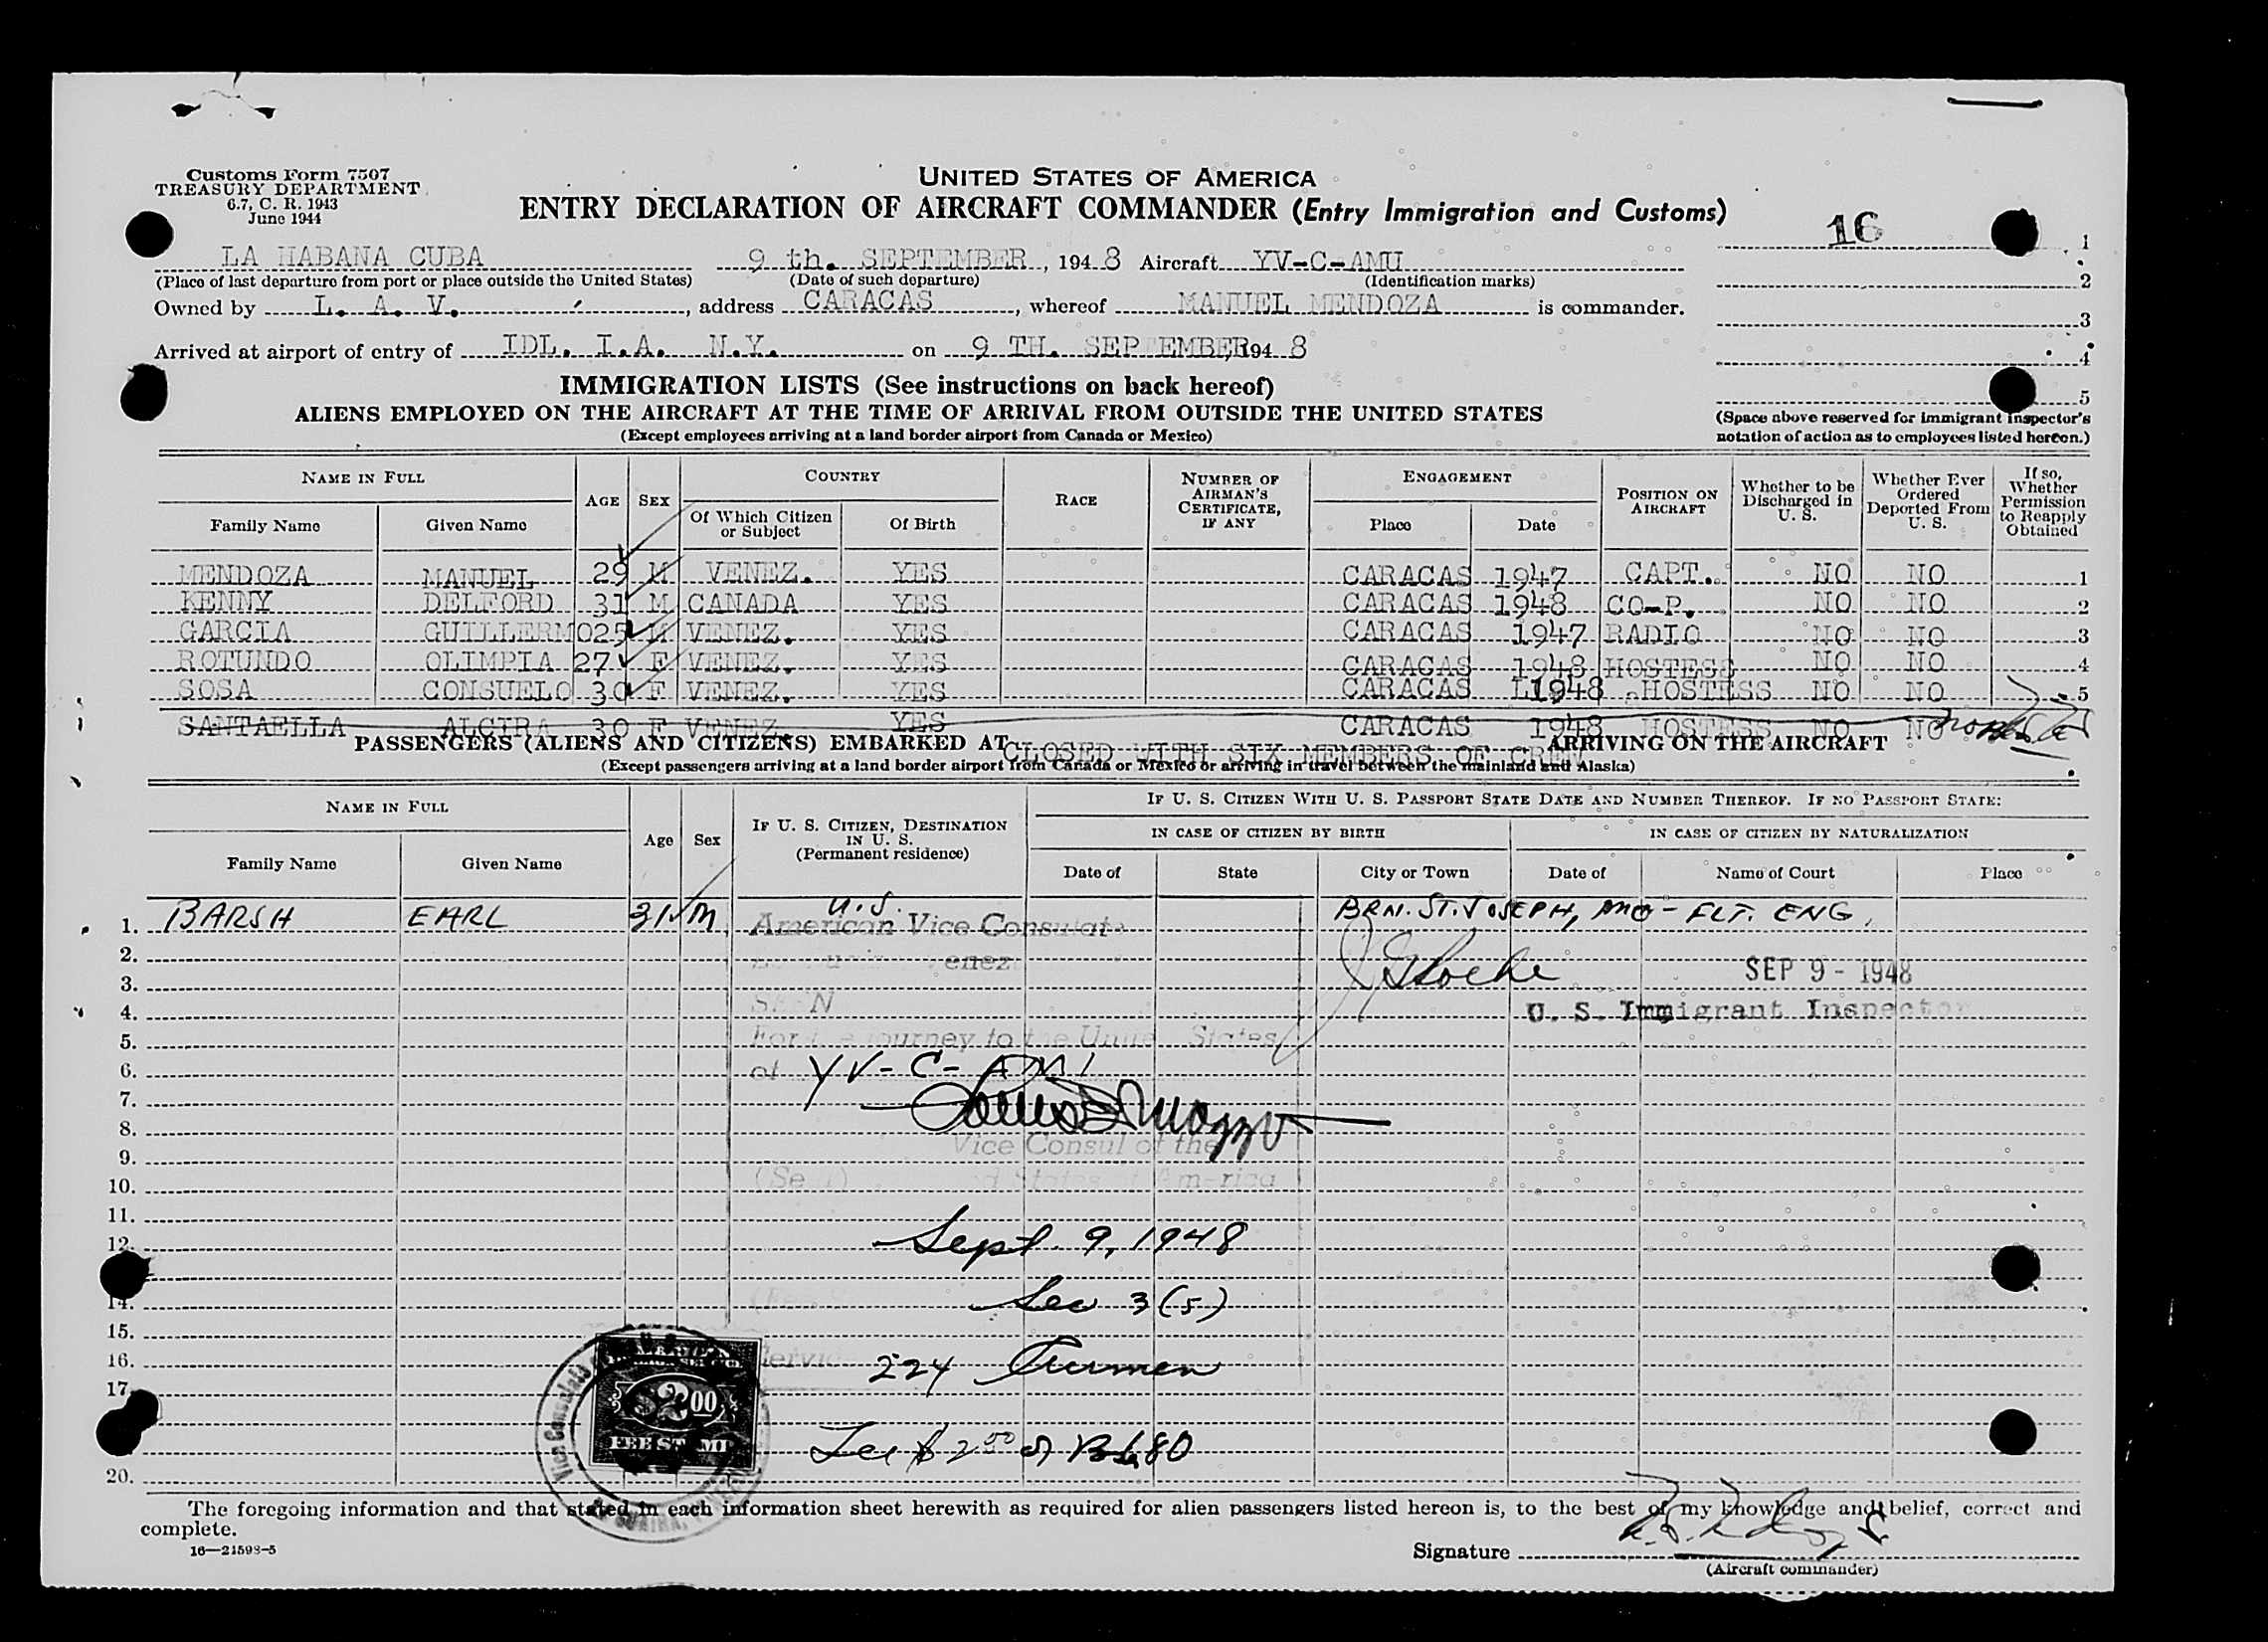 Customs Form 7507
TREASURY DEPARTMENT
6.7, C. R. 1943
June 1944
UNITED STATES OF AMERICA
ENTRY DECLARATION OF AIRCRAFT COMMANDER (Entry Immigration and Customs)
16
LA HABANA CUBA 9 th. SEPTEMBER, 1948 Aircraft YV-C-AMU
(Place of last departure from port or place outside the United States) (Date of such departure) (Identification marks)
Owned by L. A. V., address CARACAS, whereof MANUEL MENDOZA is commander.
Arrived at airport of entry of IDL. I.A. N.Y. on 9 TH. SEPTEMBER, 1948
1
2
3
4
5
(Space above reserved for immigrant inspector's
notation of action as to employees listed hereon.)
IMMIGRATION LISTS (See instructions on back hereof)
ALIENS EMPLOYED ON THE AIRCRAFT AT THE TIME OF ARRIVAL FROM OUTSIDE THE UNITED STATES
(Except employees arriving at a land border airport from Canada or Mexico)
NAME IN FULL
Family Name Given Name
AGE SEX
COUNTRY
Of Which Citizen or Subject Of Birth
RACE
NUMBER OF AIRMAN'S CERTIFICATE, IF ANY
ENGAGEMENT
Place Date
POSITION ON AIRCRAFT
Whether to be Discharged in U. S.
Whether Ever Ordered Deported From U. S.
If so, Whether Permission to Reapply Obtained
MENDOZA MANUEL 29 M VENEZ. YES CARACAS 1947 CAPT. NO NO 1
KENNY DELFORD 31 M CANADA YES CARACAS 1948 CO-P. NO NO 2
GARCIA GUILLERMO 25 M VENEZ. YES CARACAS 1947 RADIO NO NO 3
ROTUNDO OLIMPIA 27 F VENEZ. YES CARACAS 1948 HOSTESS NO NO 4
SOSA CONSUELO 30 F VENEZ. YES CARACAS 1948 HOSTESS NO NO 5
SANTAELLA ALCIRA 30 F VENEZ. YES CARACAS 1948 HOSTESS NO NO
PASSENGERS (ALIENS AND CITIZENS) EMBARKED AT ARRIVING ON THE AIRCRAFT
CLOSED WITH SIX MEMBERS OF CREW
(Except passengers arriving at a land border airport from Canada or Mexico or arriving in travel between the mainland and Alaska)
NAME IN FULL
Family Name Given Name
Age Sex
IF U. S. CITIZEN, DESTINATION IN U. S. (Permanent residence)
IF U. S. CITIZEN WITH U. S. PASSPORT STATE DATE AND NUMBER THEREOF. IF NO PASSPORT STATE:
IN CASE OF CITIZEN BY BIRTH IN CASE OF CITIZEN BY NATURALIZATION
Date of State City or Town Date of Name of Court Place
1. BARSH EARL 31 M U.S. BRN. ST. JOSEPH, MO - FLT. ENG.
American Vice Consulate
2.
3. SEP 9 - 1948
4. U. S. Immigrant Inspector
5. For the journey to the United States
6. of YV-C-AMI
7.
8. Vice Consul of the
9.
10. (Seal) States of America
11.
12. Sept. 9, 1948
14. Sec 3 (5)
15.
16. Service 224 Airmen
17.
$2.00
FEE STAMP
Fee $2.00
20.
The foregoing information and that stated in each information sheet herewith as required for alien passengers listed hereon is, to the best of my knowledge and belief, correct and
complete.
16—21598-5
Signature
(Aircraft commander)